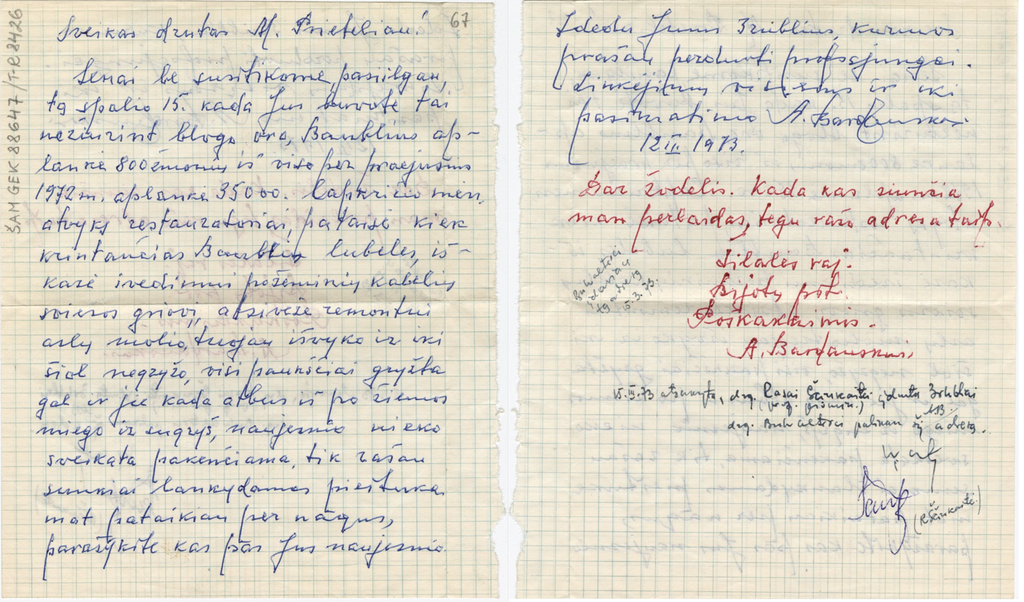 ŠAM GEK 88647/TR8426
67
Sveikas drutas M. Prieteliau!
Senai be susitikome, pasiilgau,
tą spalio 15. kada Jus buvote tai
nežiūrint blogo oro, Baublius ap-
lankė 800 žmonių iš viso per praėjusius
1972 m. aplankė 35000. lapkričio mėn,
atvykę restauratoriai, pataisė kiek
krintančias Baublių lubeles, iš-
kasė įvedimui požeminių kabelių
sviesos griovį, atsivežė remontui
molio, tuojau išvyko ir iki
šiol negryžo, visi paukščiai gryžta
gal ir jie kada atbus iš po žiemos
miego ir sugryš, naujesnio nieko
sveikata pakenčiama, tik rašau
sunkiai lankydamas pieštuką
mat pataikiau per nagus,
parašykite kas pas Jus naujesnio.
Įdedu Jums 3rublius, kuriuos
prašau perduoti profsąjungai.
Linkėjimų visiems ir iki
pasimatimo A. Bardauskas
12 III 1973.
Dar žodelis. Kada kas siunčia
man perlaidas, tegu rašo adresą taip.
Šilalės raj.
Bijotų pšt.
Poškakaimis.
A. Bardauskui.
Buhalterei
tą adresą
15.3.73.
15.III.73 atsakyta, drg. Rasai Ščiukaitei įduota 3rubliai
drg. Buhalterei palikau šį adresą.
(R. Ščiukaitei)